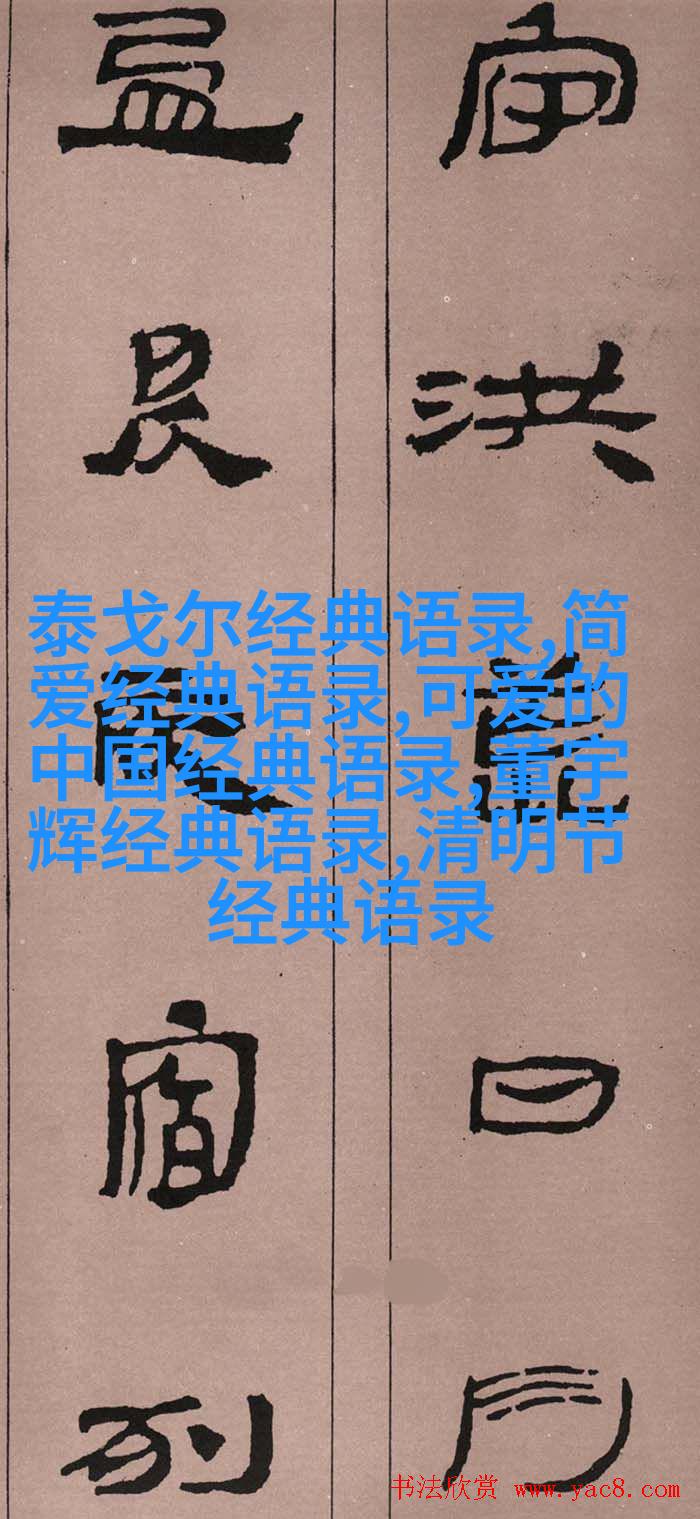 宇洪荒日月
盈昃辰宿列
泰戈尔经典语录,简
爱经典语录,可爱的
中国经典语录,董宇
辉经典语录,清明节
经典语录
书法欣赏 www.yac8.com